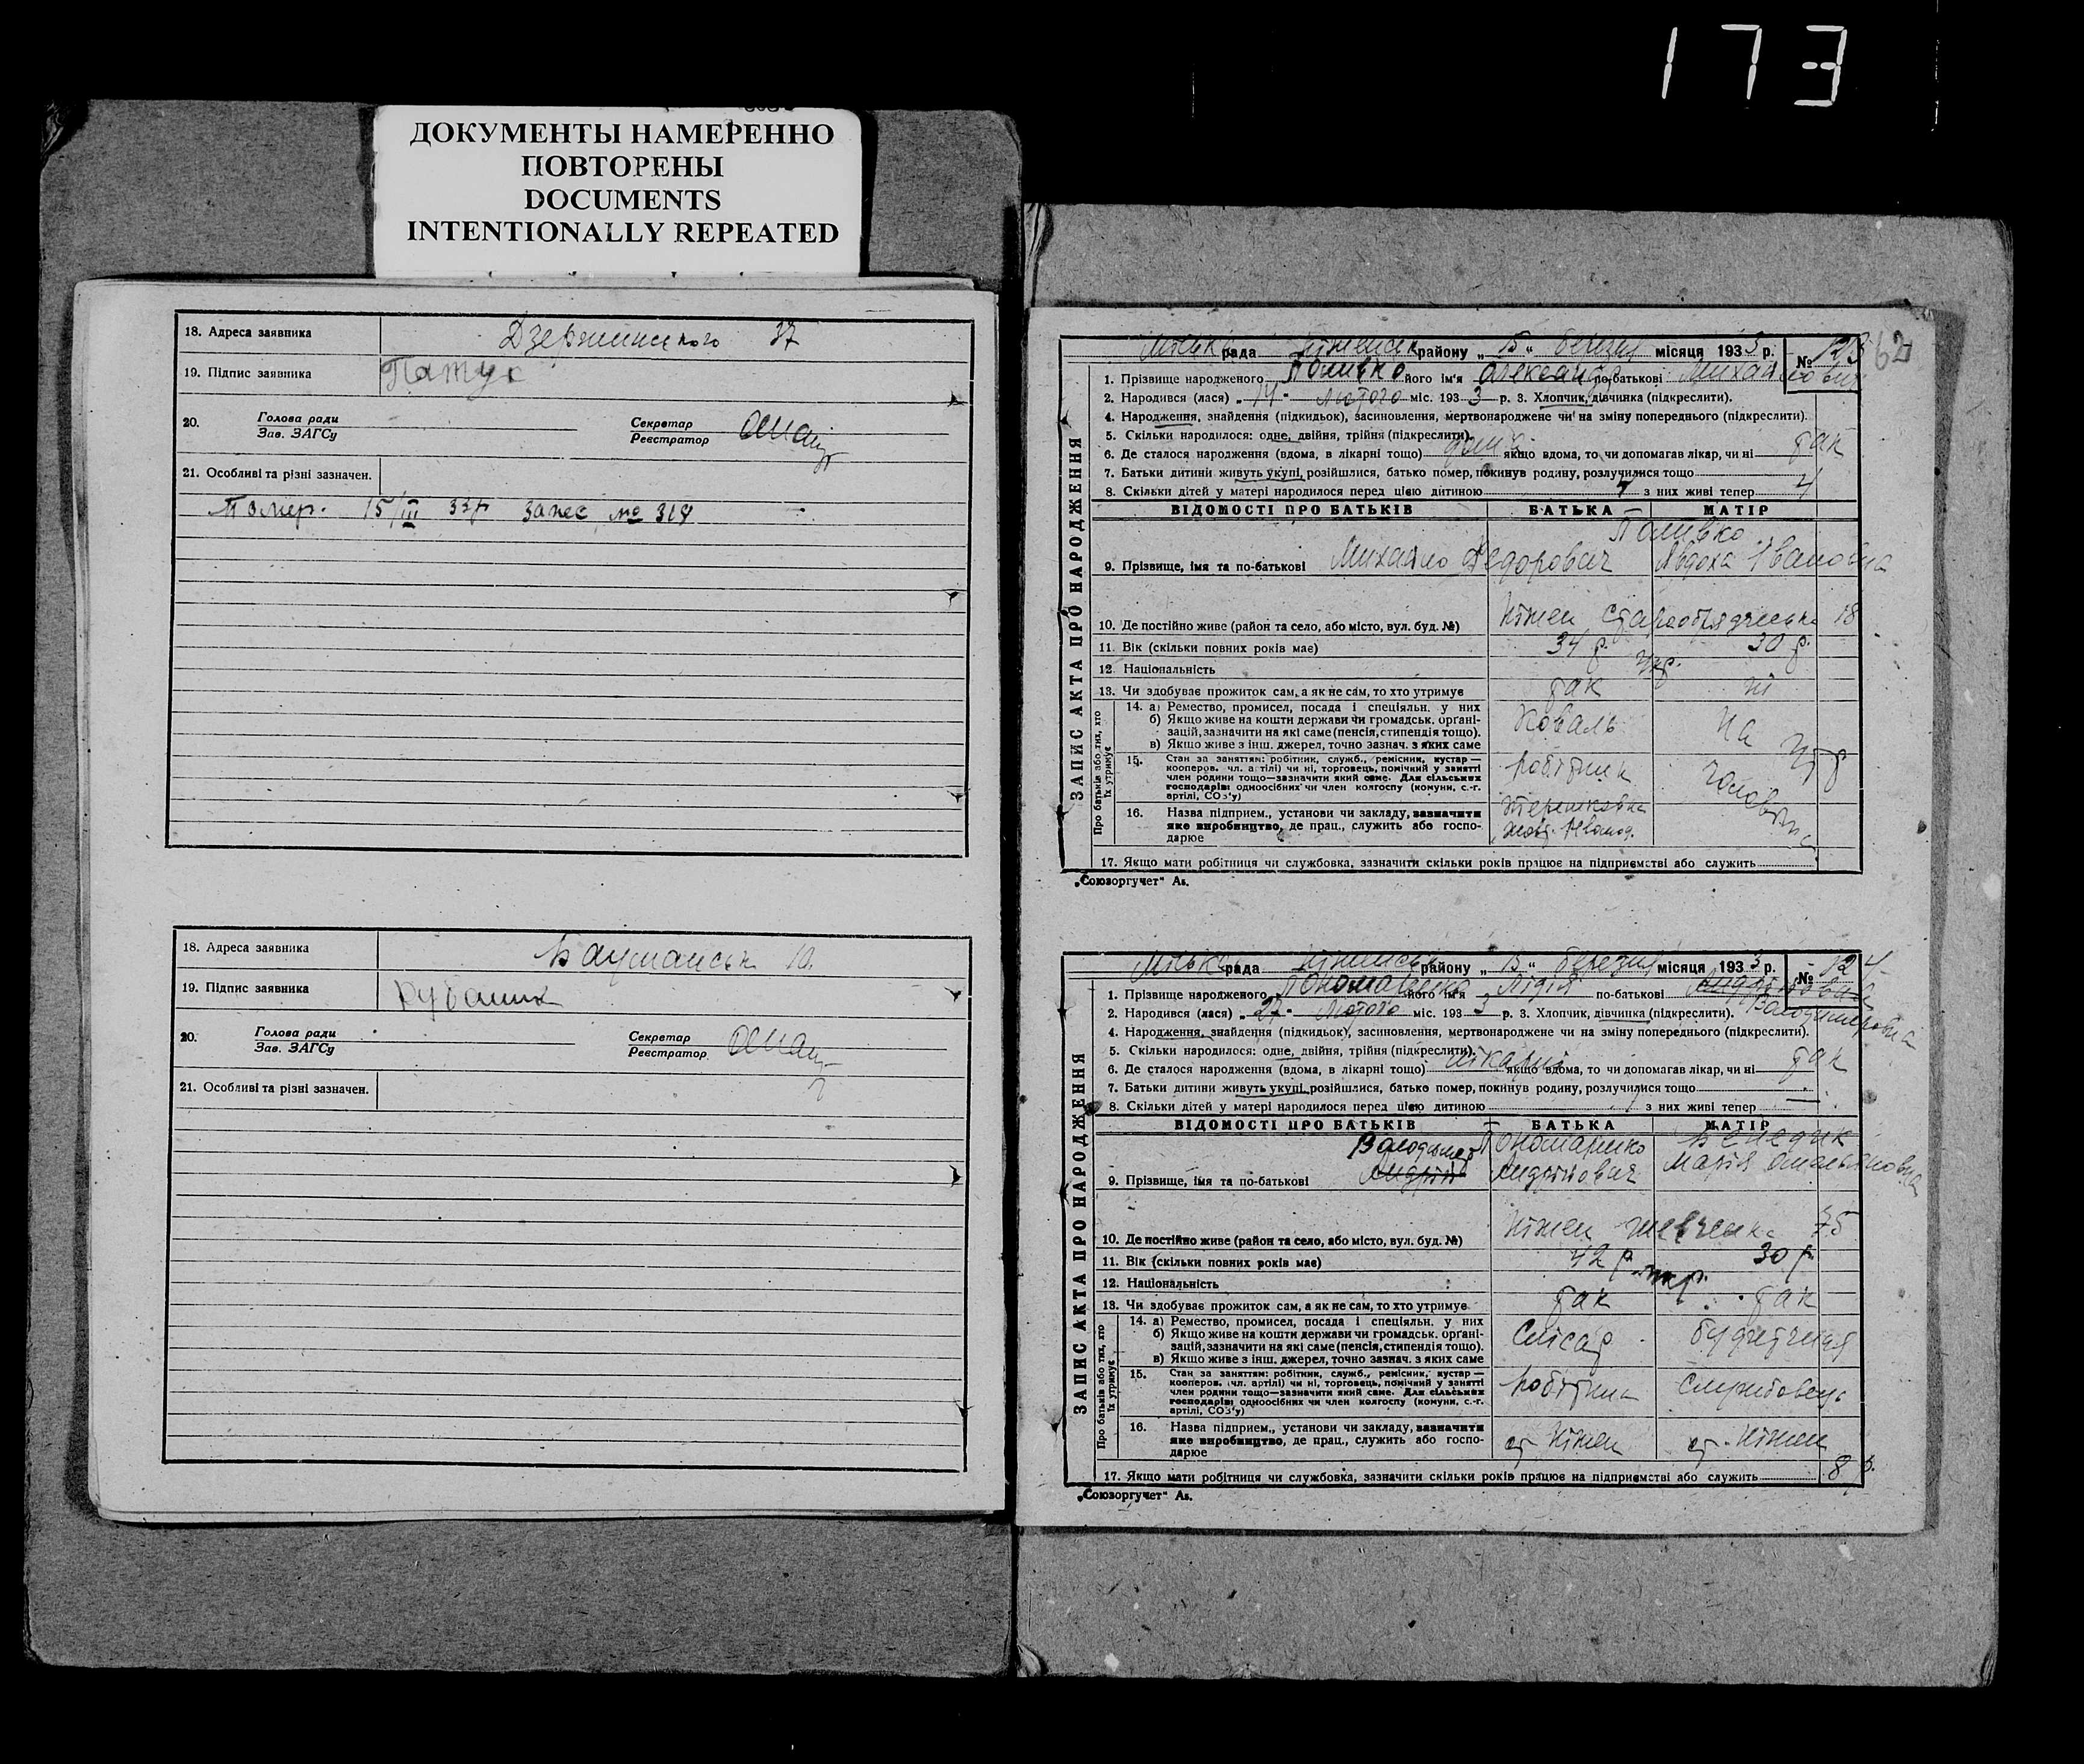 173
ДОКУМЕНТЫ НАМЕРЕННО
ПОВТОРЕНЫ
DOCUMENTS
INTENTIONALLY REPEATED
18. Адреса заявника Дзержинського 37
19. Підпис заявника
20. Голова ради
Зав. ЗАГСу
Секретар
Реєстратор
21. Особливі та різні зазначен.
Помер. 15/III 33р запис №
18. Адреса заявника 10.
19. Підпис заявника
20. Голова ради
Зав. ЗАГСу
Секретар
Реєстратор
21. Особливі та різні зазначен.
62
ЗАПИС АКТА ПРО НАРОДЖЕННЯ
Міська рада Ніженськ району „ 15 “ березня місяця 1933 р. № 123
1. Прізвище народженого Поливко його ім'я Олександр по-батькові Михайлович
2. Народився (лася) „ 14 “ Лютого міс. 1933 р. 3. Хлопчик, дівчинка (підкреслити).
4. Народження, знайдення (підкидьок), засиновлення, мертвонароджене чи на зміну попереднього (підкреслити).
5. Скільки народилося: одне, двійня, трійня (підкреслити).
6. Де сталося народження (вдома, в лікарні тощо) дома якщо вдома, то чи допомагав лікар, чи ні так
7. Батьки дитини живуть укупі, розійшлися, батько помер, покинув родину, розлучилися тощо
8. Скільки дітей у матері народилося перед цією дитиною 4 з них живі тепер 4
ВІДОМОСТІ ПРО БАТЬКІВ БАТЬКА МАТІР
Поливко
9. Прізвище, імя та по-батькові Михайло Федорович Явдоха Івановна
10. Де постійно живе (район та село, або місто, вул. буд. №) Ніжен Старообрядческа 18
11. Вік (скільки повних років має) 34 р. 30 р.
12. Національність укр.
13. Чи здобуває прожиток сам, а як не сам, то хто утримує так ні
Про батьків або тих, хто їх утримує
14. а) Ремество, промисел, посада і спеціяльн. у них
б) Якщо живе на кошти держави чи громадськ. органі-
зацій, зазначити на які саме (пенсія, стипендія тощо).
в) Якщо живе з інш. джерел, точно зазнач. з яких саме
Коваль На утр чоловіка
15. Стан за заняттям: робітник, служб., ремісник, кустар —
кооперов. (чл. артілі) чи ні, торговець, помічний у занятті
член родини тощо—зазначити який саме. Для сільських
господарів: одноосібних чи член колгоспу (комуни, с.-г.
артілі, СОЗ'у)
робітник
16. Назва підприєм., установи чи закладу, зазначити
яке виробництво, де прац., служить або госпо-
дарює
17. Якщо мати робітниця чи службовка, зазначити скільки років працює на підприємстві або служить
„Союзоргучет“ Ав.
ЗАПИС АКТА ПРО НАРОДЖЕННЯ
Міська рада Ніженськ району „ 15 “ березня місяця 1933 р. № 124
1. Прізвище народженого Пономаренко його ім'я Лідія по-батькові Володимировна
2. Народився (лася) „ 27 “ Лютого міс. 1933 р. 3. Хлопчик, дівчинка (підкреслити).
4. Народження, знайдення (підкидьок), засиновлення, мертвонароджене чи на зміну попереднього (підкреслити).
5. Скільки народилося: одне, двійня, трійня (підкреслити).
6. Де сталося народження (вдома, в лікарні тощо) лікарні якщо вдома, то чи допомагав лікар, чи ні так
7. Батьки дитини живуть укупі, розійшлися, батько помер, покинув родину, розлучилися тощо
8. Скільки дітей у матері народилося перед цією дитиною з них живі тепер
ВІДОМОСТІ ПРО БАТЬКІВ БАТЬКА МАТІР
Володимер Пономаренко
9. Прізвище, імя та по-батькові Андрій Андрійович Марія Омельяновна
10. Де постійно живе (район та село, або місто, вул. буд. №) Ніжен Шевченка 75
11. Вік (скільки повних років має) 42 р. 30 р.
12. Національність укр.
13. Чи здобуває прожиток сам, а як не сам, то хто утримує так так
Про батьків або тих, хто їх утримує
14. а) Ремество, промисел, посада і спеціяльн. у них
б) Якщо живе на кошти держави чи громадськ. органі-
зацій, зазначити на які саме (пенсія, стипендія тощо).
в) Якщо живе з інш. джерел, точно зазнач. з яких саме
Слісар
15. Стан за заняттям: робітник, служб., ремісник, кустар —
кооперов. (чл. артілі) чи ні, торговець, помічний у занятті
член родини тощо—зазначити який саме. Для сільських
господарів: одноосібних чи член колгоспу (комуни, с.-г.
артілі, СОЗ'у)
робітник службовець
16. Назва підприєм., установи чи закладу, зазначити
яке виробництво, де прац., служить або госпо-
дарює
ст. Ніжен ст. Ніжен
17. Якщо мати робітниця чи службовка, зазначити скільки років працює на підприємстві або служить 8 р.
„Союзоргучет“ Ав.